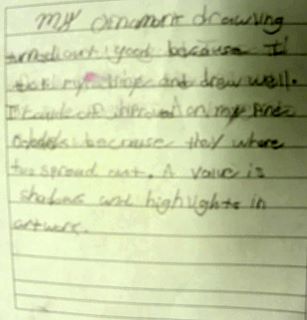 My ornament drawing
turned out good because I
took my time and draw well.
I could of improved on my pine
needles because they where
too spread out. A value is
shadows and highlights in
artwork.